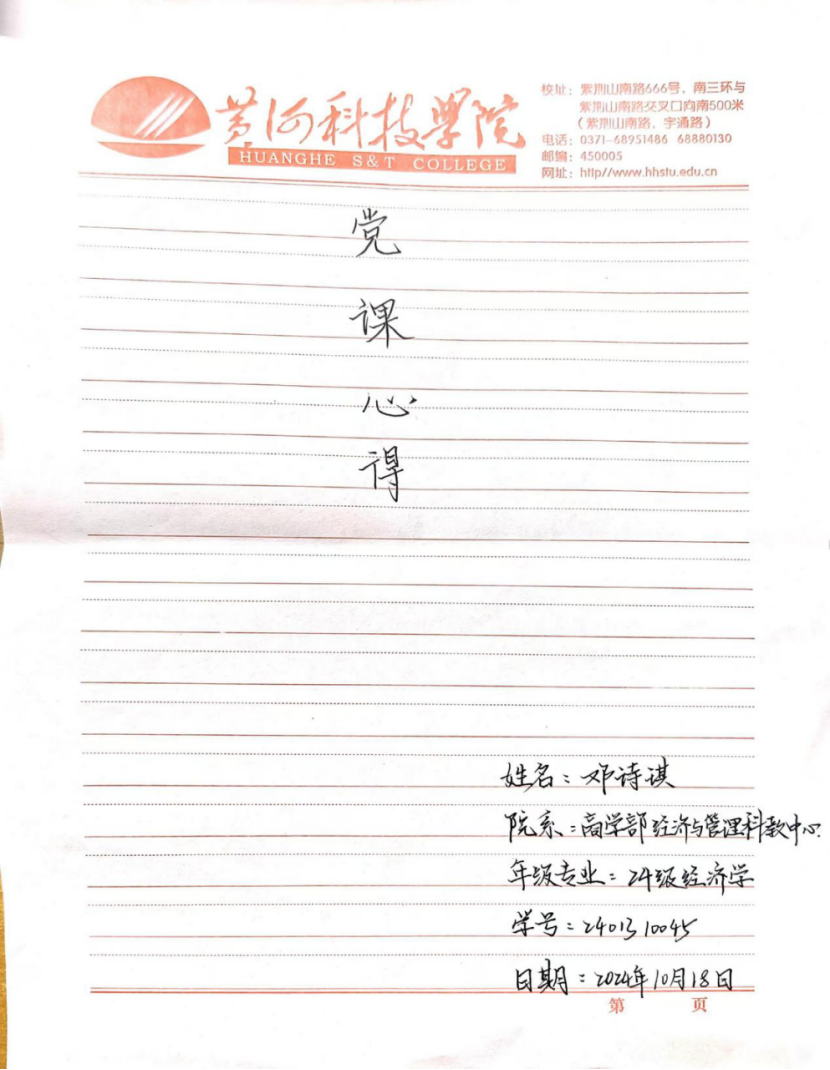 黄河科技学院
HUANGHE S&T COLLEGE
校址：紫荆山南路666号，南三环与
紫荆山南路交叉口向南500米
（紫荆山南路、宇通路）
电话：0371-68951486 68880130
邮编：450005
网址：http//www.hhstu.edu.cn
党
课
心
得
姓名：邓诗琪
院系：商学部经济与管理科教中心
年级专业：24级经济学
学号：2401310045
日期：2024年10月18日
第 页